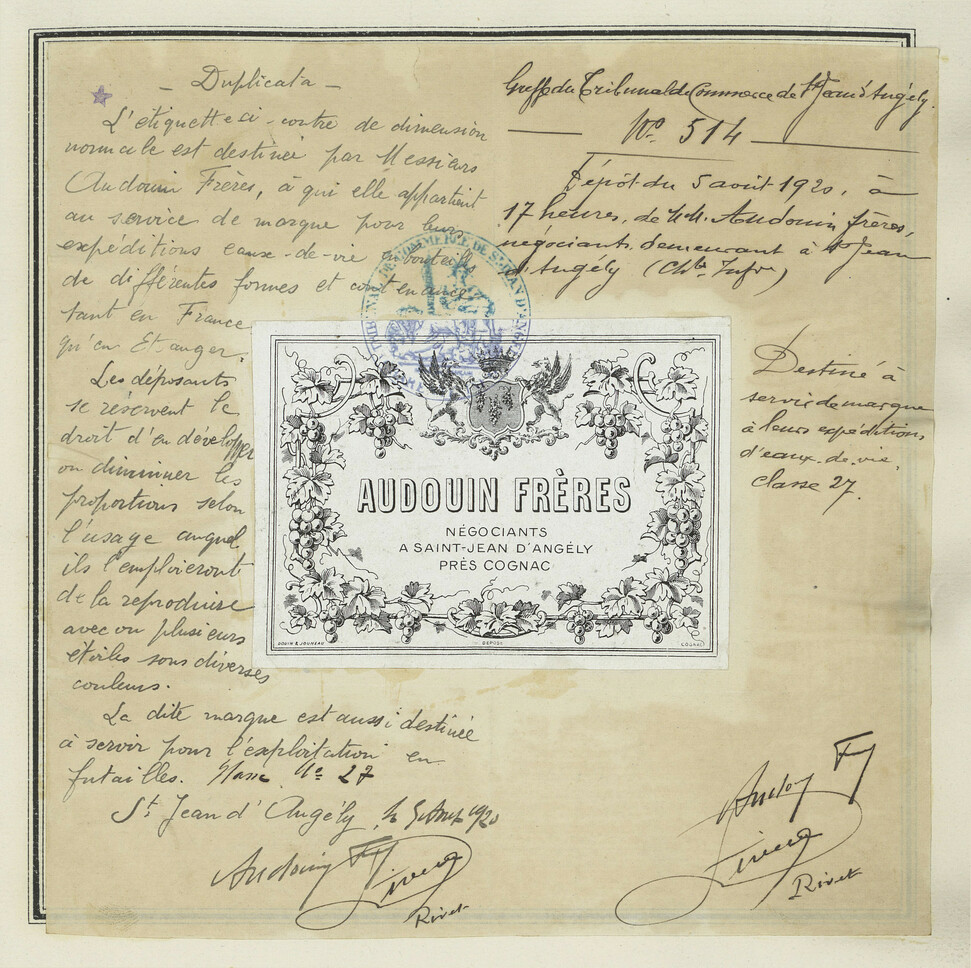 — Duplicata —
L'étiquette ci-contre de dimension
normale est destinée par Messieurs
Audouin Frères, à qui elle appartient
au service de marque pour leurs
expéditions eaux-de-vie en bouteilles
de différentes formes et contenance
tant en France
qu'en Etranger.
Les déposants
se réservent le
droit d'en développer
ou diminuer les
proportions selon
l'usage auquel
ils l'emploieront
de la reproduire
avec ou plusieurs
étoiles sous diverses
couleurs.
La dite marque est aussi destinée
à servir pour l'exploitation en
futailles. Classe No 27
St Jean d'Angély, le 5 Août 1920
Audouin Fs
Rivet
Greffe du Tribunal de Commerce de St Jean d'Angély.
No. 514
Dépôt du 5 août 1920, à
17 heures, de MM. Audouin frères,
négociants, demeurant à St Jean
d'Angély (Chte Infre)
TRIBUNAL DE COMMERCE DE ST JEAN D'ANGÉLY
AUDOUIN FRÈRES
NÉGOCIANTS
A SAINT-JEAN D'ANGÉLY
PRÈS COGNAC
DÉPOSÉ
COGNAC
Destiné à
servir de marque
à leurs expéditions
d'eaux-de-vie,
Classe 27.
Rivet